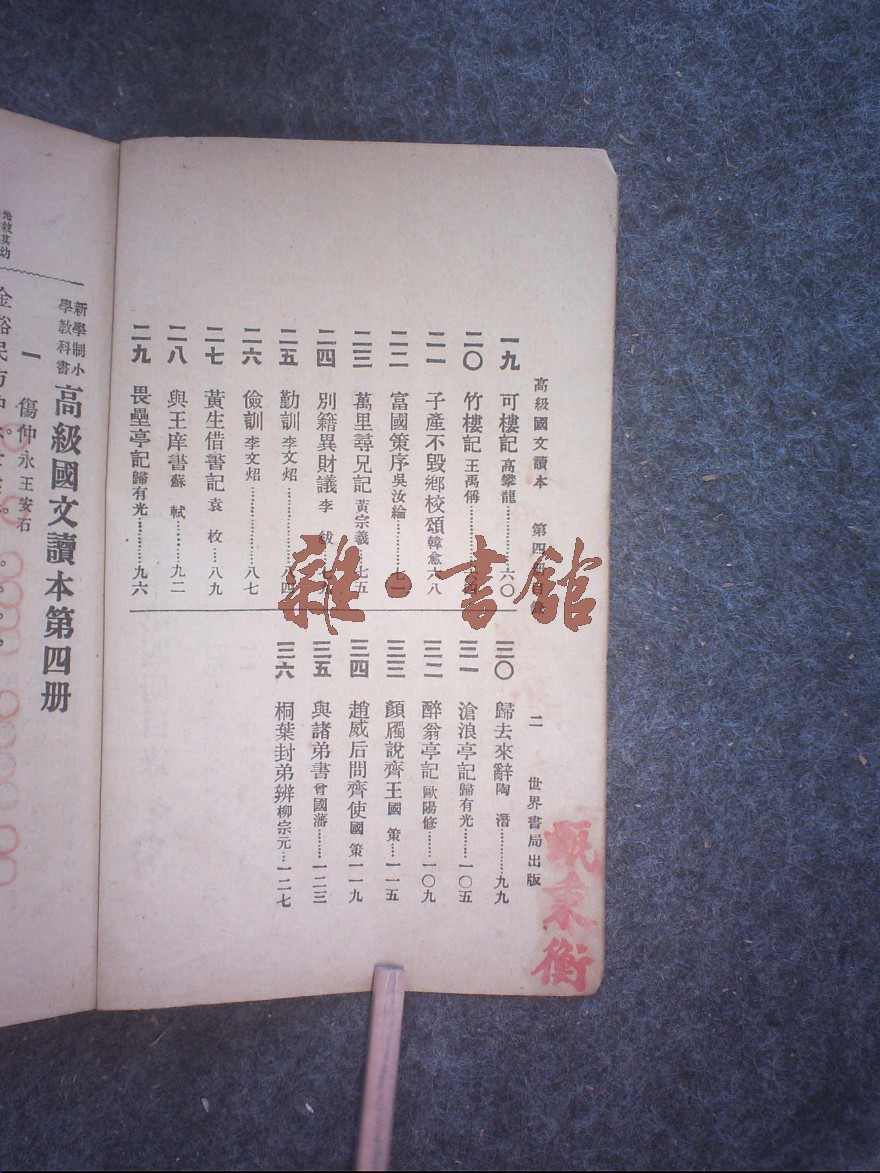 高級國文讀本　第四册目錄　二　世界書局出版
一九　可樓記 高攀龍………六〇
二〇　竹樓記 王禹偁………六四
二一　子產不毀鄉校頌 韓愈 六八
二二　富國策序 吳汝綸………七一
二三　萬里尋兄記 黃宗羲　七五
二四　別籍異財議 李　紱
二五　勤訓 李文炤………八四
二六　儉訓 李文炤………八七
二七　黃生借書記 袁　枚…八九
二八　與王庠書 蘇　軾………九二
二九　畏壘亭記 歸有光………九六
三〇　歸去來辭 陶　潛………九九
三一　滄浪亭記 歸有光………一〇五
三二　醉翁亭記 歐陽修………一〇九
三三　顏斶說齊王 國　策…一一五
三四　趙威后問齊使 國　策 一一九
三五　與諸弟書 曾國藩………一二三
三六　桐葉封弟辨 柳宗元…一二七
雜·書館
甄秉衡
新學制小學教科書　高級國文讀本第四册
一　傷仲永 王安石
金谿民方仲